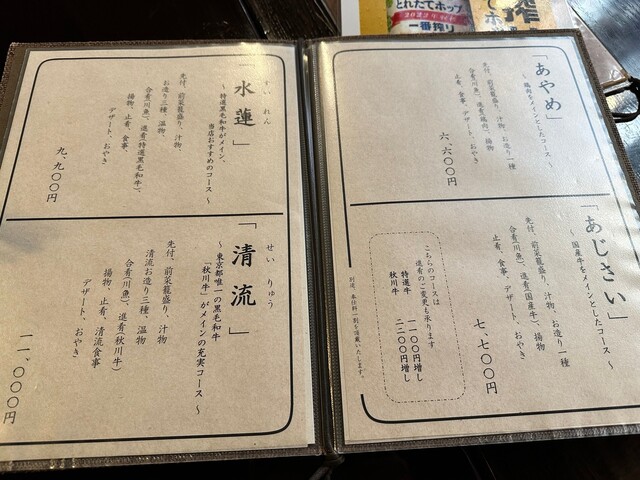 とれたてホップ
2022年秋
一番搾り
「あやめ」
～ 鶏肉をメインとしたコース ～
先付、前菜籠盛り、汁物、お造り一種
合肴(川魚)、進肴(鶏肉)、揚物
止肴、食事、デザート、おやき
六、六〇〇円
「あじさい」
～ 国産牛をメインとしたコース ～
先付、前菜籠盛り、汁物、お造り一種
合肴(川魚)、進肴(国産牛)、揚物
止肴、食事、デザート、おやき
七、七〇〇円
こちらのコースは
進肴のご変更も承ります
特選牛 一一〇〇円増し
秋川牛 二二〇〇円増し
別途、奉仕料一割を頂戴いたします。
すい れん
「水蓮」
～ 特選黒毛和牛がメイン、
当店おすすめのコース ～
先付、前菜籠盛り、汁物、
お造り三種、温物、
合肴(川魚)、進肴(特選黒毛和牛)、
揚物、止肴、食事、
デザート、おやき
九、九〇〇円
せい りゅう
「清流」
～ 東京都唯一の黒毛和牛
「秋川牛」がメインの充実コース ～
先付、前菜籠盛り、汁物
清流お造り三種、温物
合肴(川魚)、進肴秋川牛)
揚物、止肴、清流食事
デザート、おやき
一一、〇〇〇円